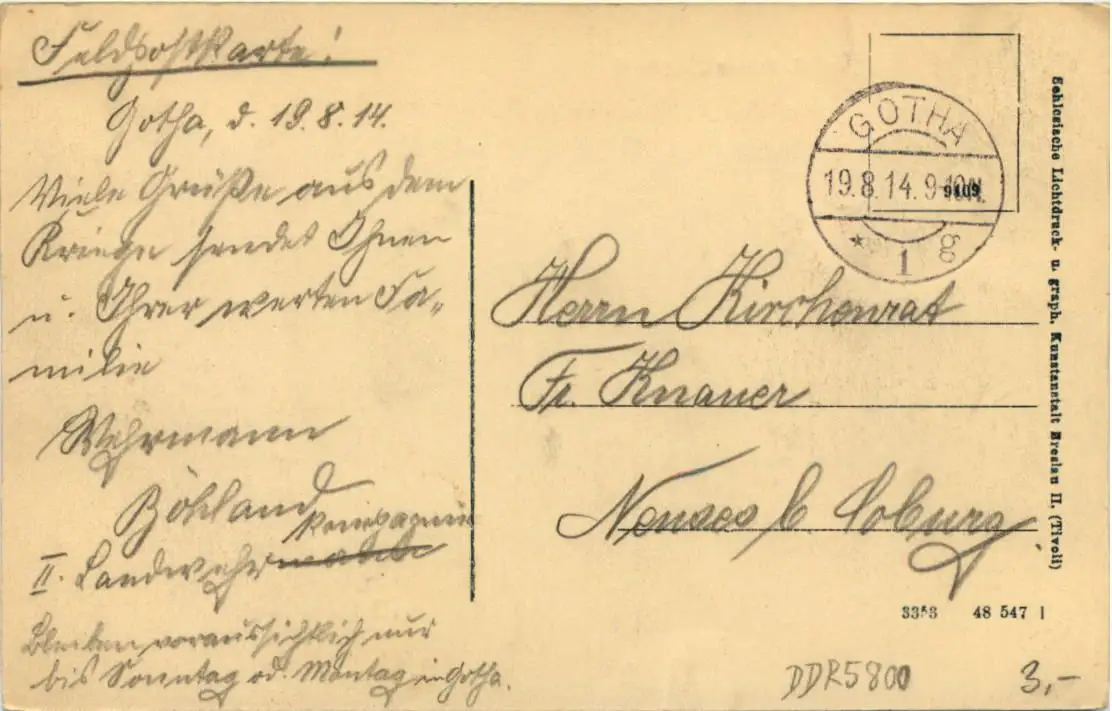 Feldpostkarte!
Gotha, d. 19.8.14.
Viele Grüße aus dem
Kriege sendet Ihnen
u. Ihrer werten Fa-
milie
Wehrmann
Böhland
Kompagnie
II. Landwehr
Bleiben voraussichtlich nur
bis Sonntag od. Montag in Gotha.
GOTHA
19.8.14.9-10N.
9409
* 1 g
Herrn Kirchenrat
Fr. Knauer
Neuses b. Coburg.
Schlesische Lichtdruck- u. graph. Kunstanstalt Breslau II. (Tivoli)
3353 48 547 1
DDR5800
3,-